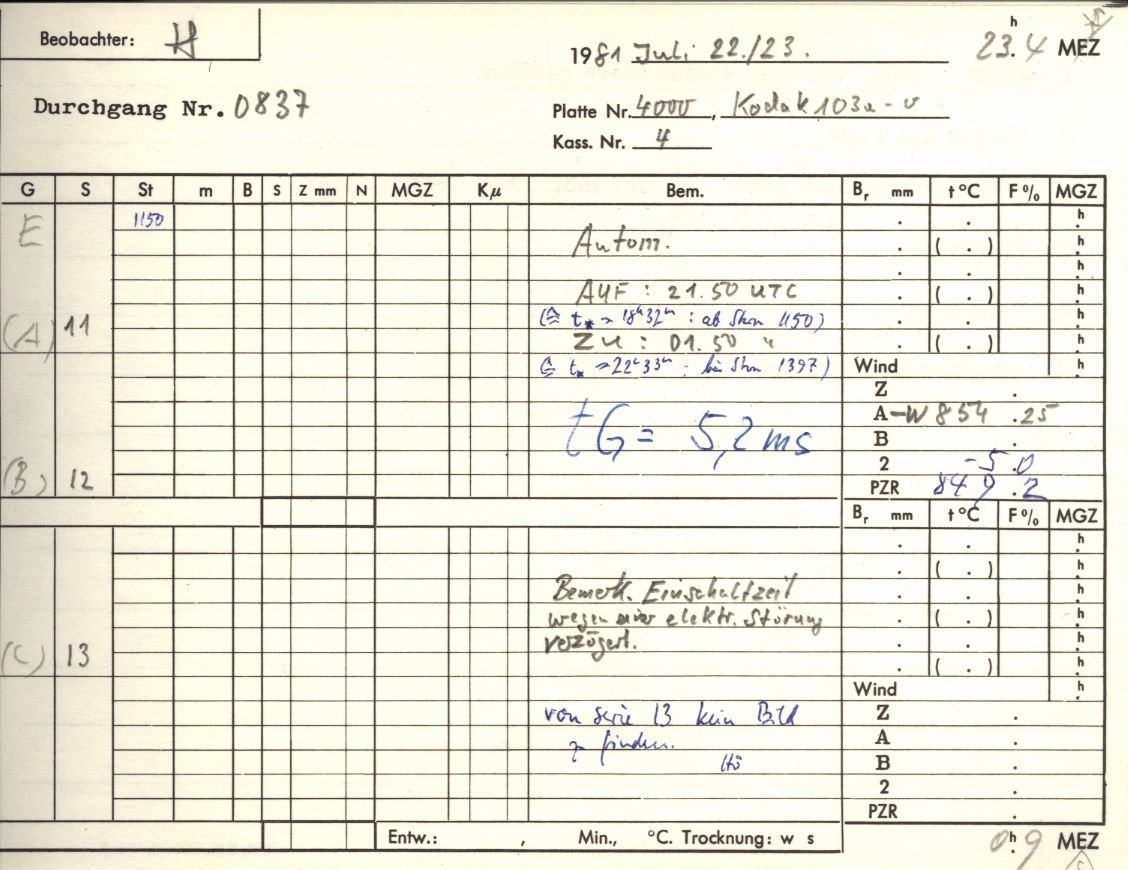 Beobachter: H
1981 Juli 22./23. 23.4 h MEZ
Durchgang Nr. 0837
Platte Nr. 4000, Kodak 103a-U
Kass. Nr. 4
G S St m B S Z mm N MGZ Kμ Bem. Br mm t °C F % MGZ
E 1150 . . h
Autom. . ( . ) h
. . h
AUF : 21.50 UTC . ( . ) h
(A) 11 (≙ t* = 18h32m : ab Stern 1150) . . h
ZU : 01.50 " . ( . ) h
(≙ t* = 22h33m : bis Stern 1397) Wind h
Z .
A -W 854 .25
tG = 5,2 ms B .
2 -5.0
(B) 12 PZR 849.2
Br mm t °C F % MGZ
. . h
. ( . ) h
Bemerk. Einschaltzeit . . h
wegen einer elektr. Störung . ( . ) h
verzögert. . . h
(C) 13 . ( . ) h
Wind h
von Serie 13 kein Bild Z .
zu finden. A .
Hö B .
2 .
PZR .
Entw.: , Min., °C. Trocknung: w s
0h.9 MEZ